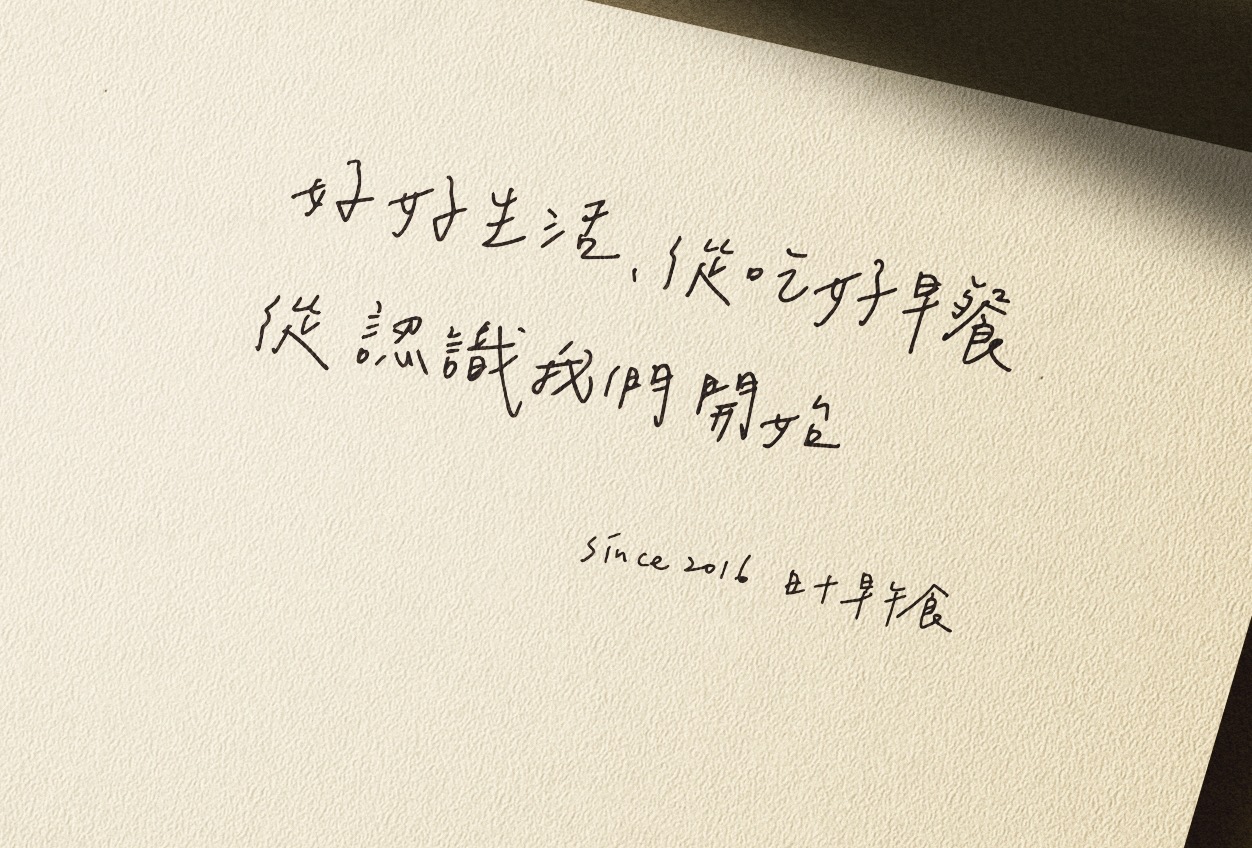 好好生活、從吃好早餐
從認識我們開始
since 2016 日十早午食